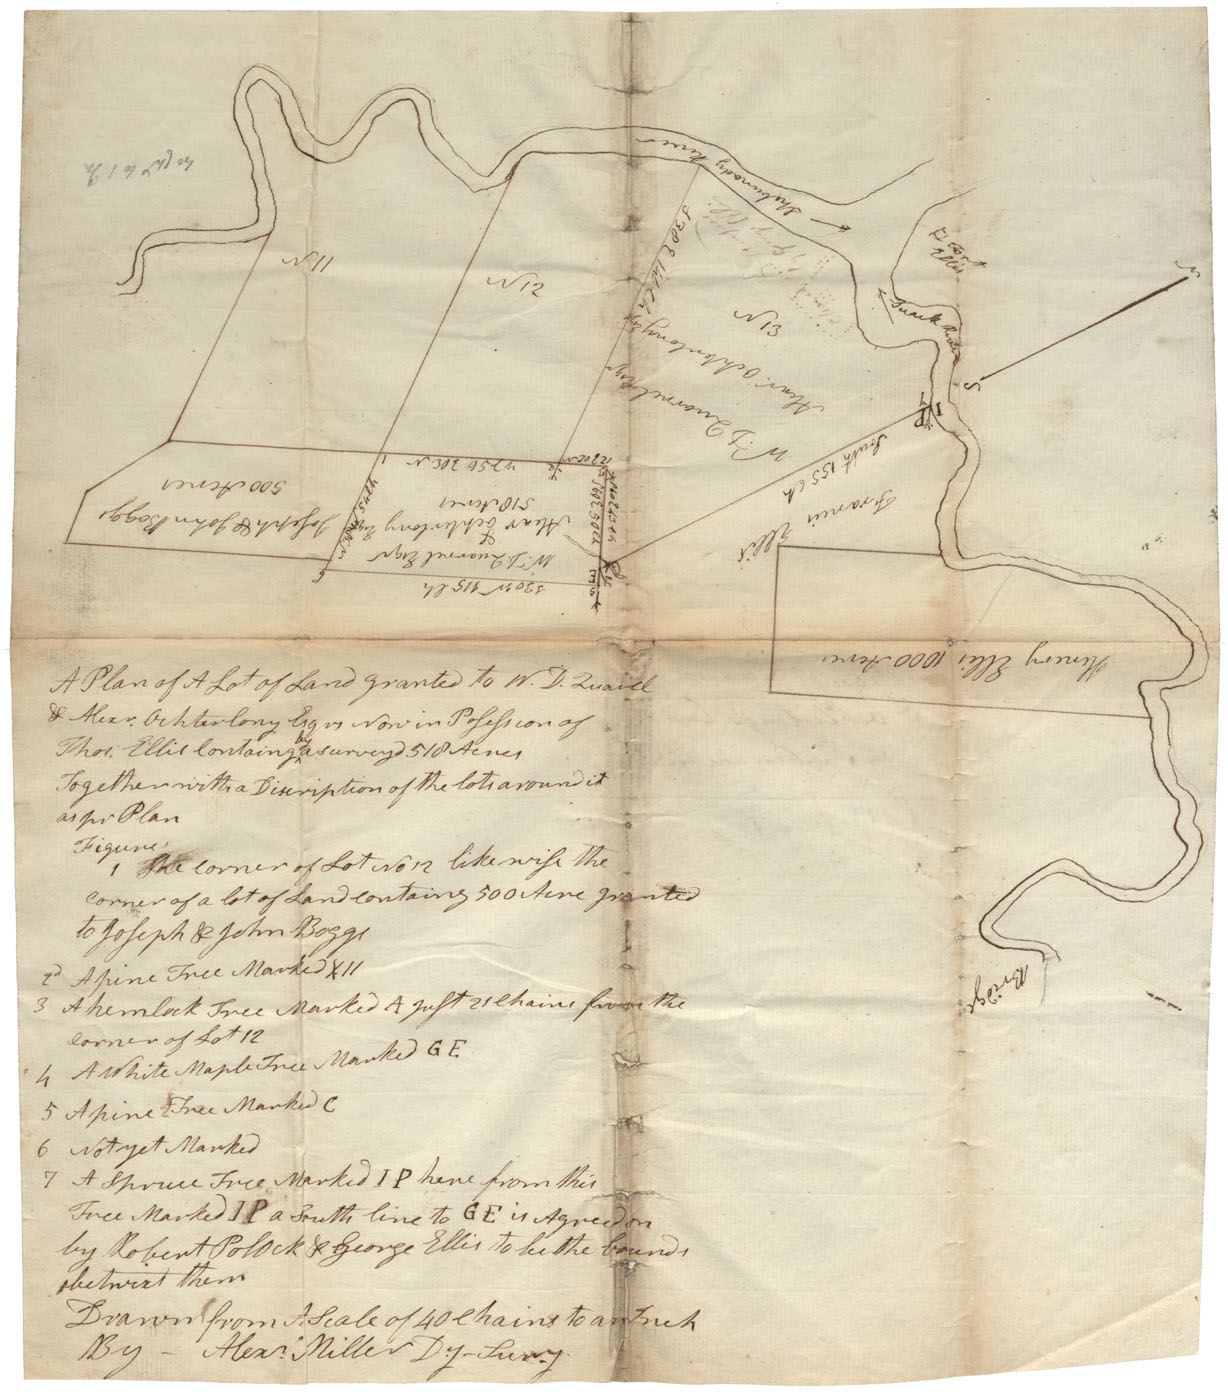 40 ch to 1 In
Shebunacady River
No 11
No 12
No 13
W. D. Quarrel Esqr
Alexr. Ochterlony Esqr
Ellis
N
S
IP
7
South 155 Ch
Francis Ellis
500 Acres
Joseph & John Boggs
510 Acres
Alexr Ochterlony Esqr
&
W. D Quarrel Esqr
S 20 W 115 Ch
1
6
Henery Ellis 1000 Acres
Bridge
A Plan of A Lot of Land granted to W. D. Quarell
& Alexr. Ochterlony Esqrs Now in Posession of
Thos. Ellis Containg by a survey'd 510 Acres
Together with a Discription of the lots around it
as pr Plan
Figures
1 The corner of Lot No 12 likewise the
corner of a lot of Land containg 500 Acre granted
to Joseph & John Boggs
2d A pine Tree Marked X 11
3 A hemlock Tree Marked A Just 21 Chains from the
corner of Lot 12
4 A White Maple Tree Marked G E
5 A pine Tree Marked C
6 Not yet Marked
7 A Spruse Tree Marked I P here from this
Tree Marked I P a South line to G E is Agreed on
by Robert Polock & George Ellis to be the bounds
betwixt them
Drawn from A Scale of 40 Chains to an Inch
By - Alexr. Miller Dy-Survy.